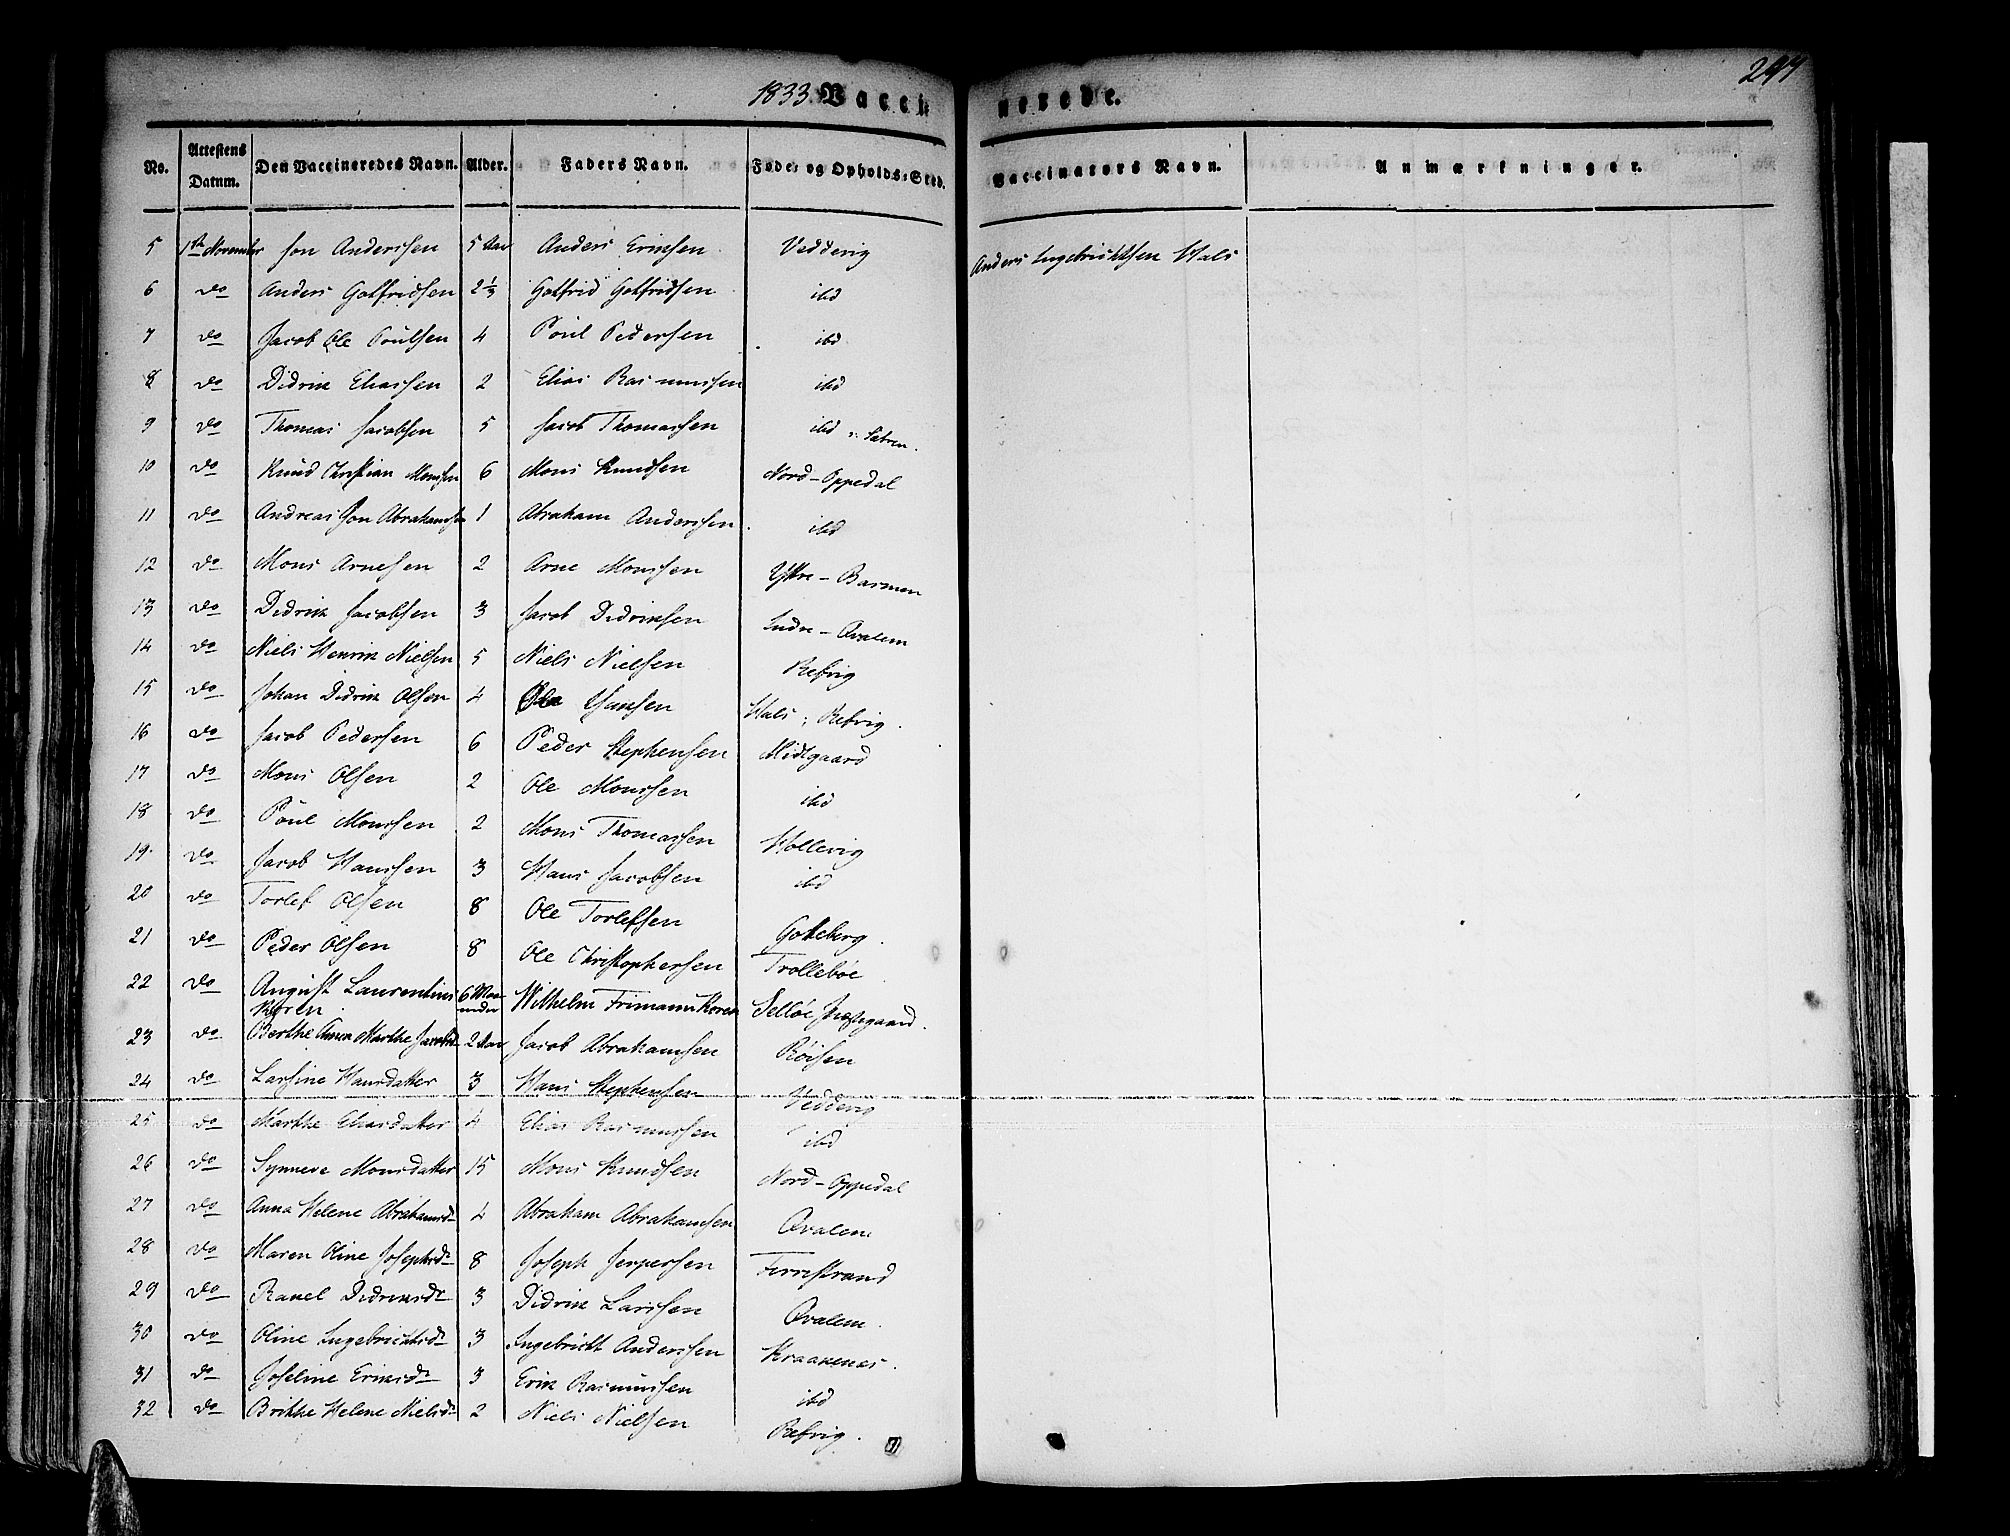 1833. Vaccinerede. 247
No. Attestens Datum. Den Vaccineredes Navn. Alder. Faders Navn. Føde- og Opholds-Sted. Vaccinators Navn. Anmærkninger.
5 1ste November Jon Anderssen 5 Aar Anders Eriksen Vedderig Anders Ingebrichtsen Hals
6 do Anders Gotfridsen 2 1/3 Gotfrid Gotfridsen ibd
7 do Jacob Ole Poulsen 4 Poul Pedersen ibd
8 do Didrik Eliassen 2 Elias Rasmussen ibd
9 do Thomas Jacobsen 5 Jacob Thomassen ibd
10 do Knud Christian Monssen 6 Mons Knudsen Nord-Oppedal
11 do Andreas Jon Abrahamsen 1 Abraham Anderssen ibd
12 do Mons Arnesen 2 Arne Monssen Yttre-Barmen
13 do Didrik Jacobsen 3 Jacob Didriksen Indre-Qvalem
14 do Niels Henrik Nielsen 5 Niels Nielsen Refvig
15 do Johan Didrik Olsen 4 Ole Hansen Hals i Refvig.
16 do Jacob Pedersen 6 Peder Stephensen Midtgaard
17 do Mons Olsen 2 Ole Monssen ibd
18 do Poul Monssen 2 Mons Thomassen Hollevig
19 do Jacob Hanssen 3 Hans Jacobsen ibd
20 do Torlef Olsen 8 Ole Torlefsen Gotteberg.
21 do Peder Olsen 8 Ole Christophersen Trolleboe
22 do August Laurentius Koren 6 Maaneder Wilhelm Frimann Koren Selløe Præstgaard.
23 do Berthe Anna Marthe Jacobsd. 2 Aar Jacob Abrahamsen Røisen
24 do Larsine Hansdatter 3 Hans Stephensen Vedderig
25 do Marthe Eliasdatter 4 Elias Rasmussen ibd
26 do Synneve Monsdatter 15 Mons Knudsen Nord-Oppedal
27 do Anna Helene Abrahamsdr 4 Abraham Abrahamsen Qvalem
28 do Maren Oline Josephsdr 8 Joseph Jespersen Ferrestrand
29 do Rakel Didriksdr 3 Didrik Larssen Qvalem.
30 do Oline Ingebrichtsdr 3 Ingebricht Anderssen Kraakenes.
31 do Joseline Eriksdr 3 Erik Rasmussen ibd
32 do Brithe Helene Nielsdr 2 Niels Nielsen Refvig.